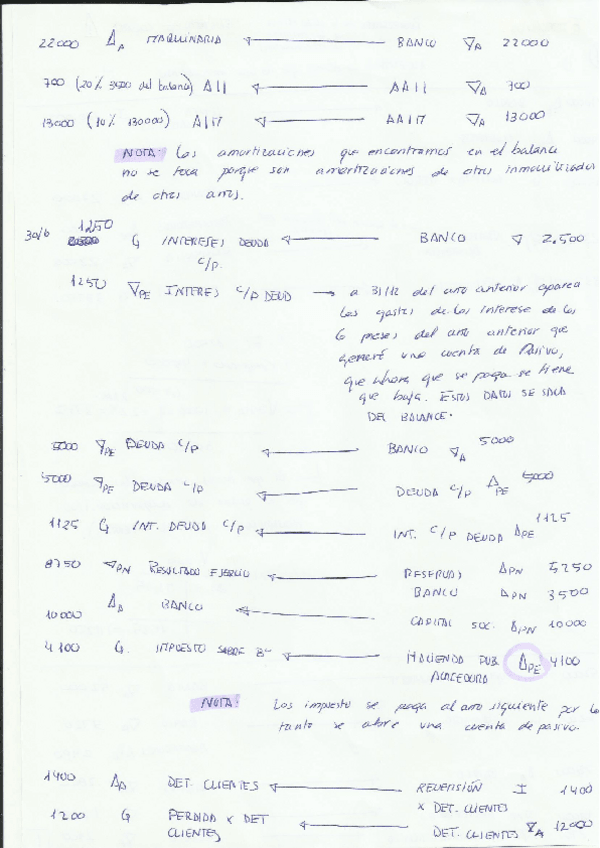 22000 ΔA MAQUINARIA ← BANCO ∇A 22000
700 (20% 3500 del balance) AII ← AAII ∇A 700
13000 (10% 130000) AIM ← AAIM ∇A 13000
NOTA: Las amortizaciones que encontramos en el balance
no se toca porque son amortizaciones de otros inmovilizados
de otros años.
30/6 1250 G INTERESES DEUDA ← BANCO ∇ 2.500
C/P.
1250 ∇PE INTERES C/P DEUD → a 31/12 del año anterior aparea
los gastos de los interese de los
6 meses del año anterior que
generó una cuenta de Pasivo,
que ahora que se paga se tiene
que baja. ESTOS DATOS SE SACA
DEL BALANCE.
5000 ∇PE DEUDA C/P ← BANCO ∇A 5000
5000 ∇PE DEUDA C/P ← DEUDA C/P ΔPE 5000
1125 G INT. DEUDA C/P ← INT. C/P DEUDA ΔPE 1125
8750 ∇PN RESULTADO EJERCICIO ← RESERVAS ΔPN 5250
BANCO ΔPN 3500
10000 ΔA BANCO ← CAPITAL SOC. ΔPN 10000
4100 G. IMPUESTO SOBRE Bº ← HACIENDA PUB. ΔPE 4100
ACREEDORA
NOTA: Los impuesto se paga al año siguiente por lo
tanto se abre una cuenta de pasivo.
1400 ΔA DET. CLIENTES ← REVERSIÓN I 1400
x DET. CLIENTES
1200 G PERDIDA x DET ← DET. CLIENTES ∇A 12000
CLIENTES